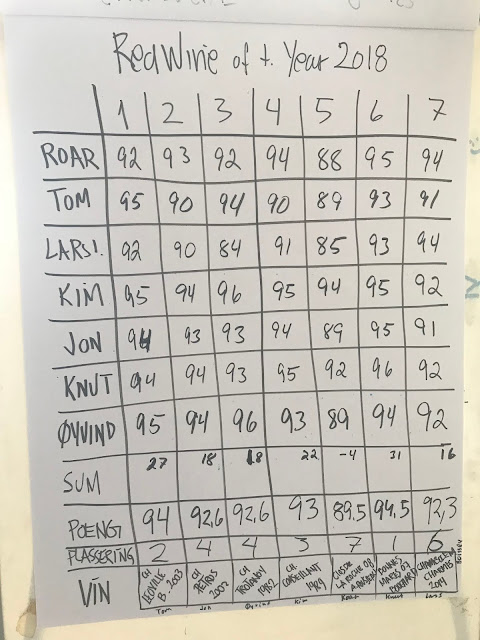 Red Wine of t. Year 2018
1 2 3 4 5 6 7
ROAR 92 93 92 94 88 95 94
TOM 95 90 94 90 89 93 91
LARS! 92 90 84 91 85 93 94
KIM 95 94 96 95 94 95 92
JON 94 93 93 94 89 95 91
KNUT 94 94 93 95 92 96 92
ØYVIND 95 94 96 93 89 94 92
SUM 27 18 18 22 -4 31 16
POENG 94 92,6 92,6 93 89.5 94,5 92,3
PLASSERING 2 4 4 3 7 1 6
VIN CH CH CH CH
PETRUS TROTANOY LA ROCHE 08
B. 2003 2002 1982 1989 2014
Tom Jon Øyvind Kim Roar Knut Lars